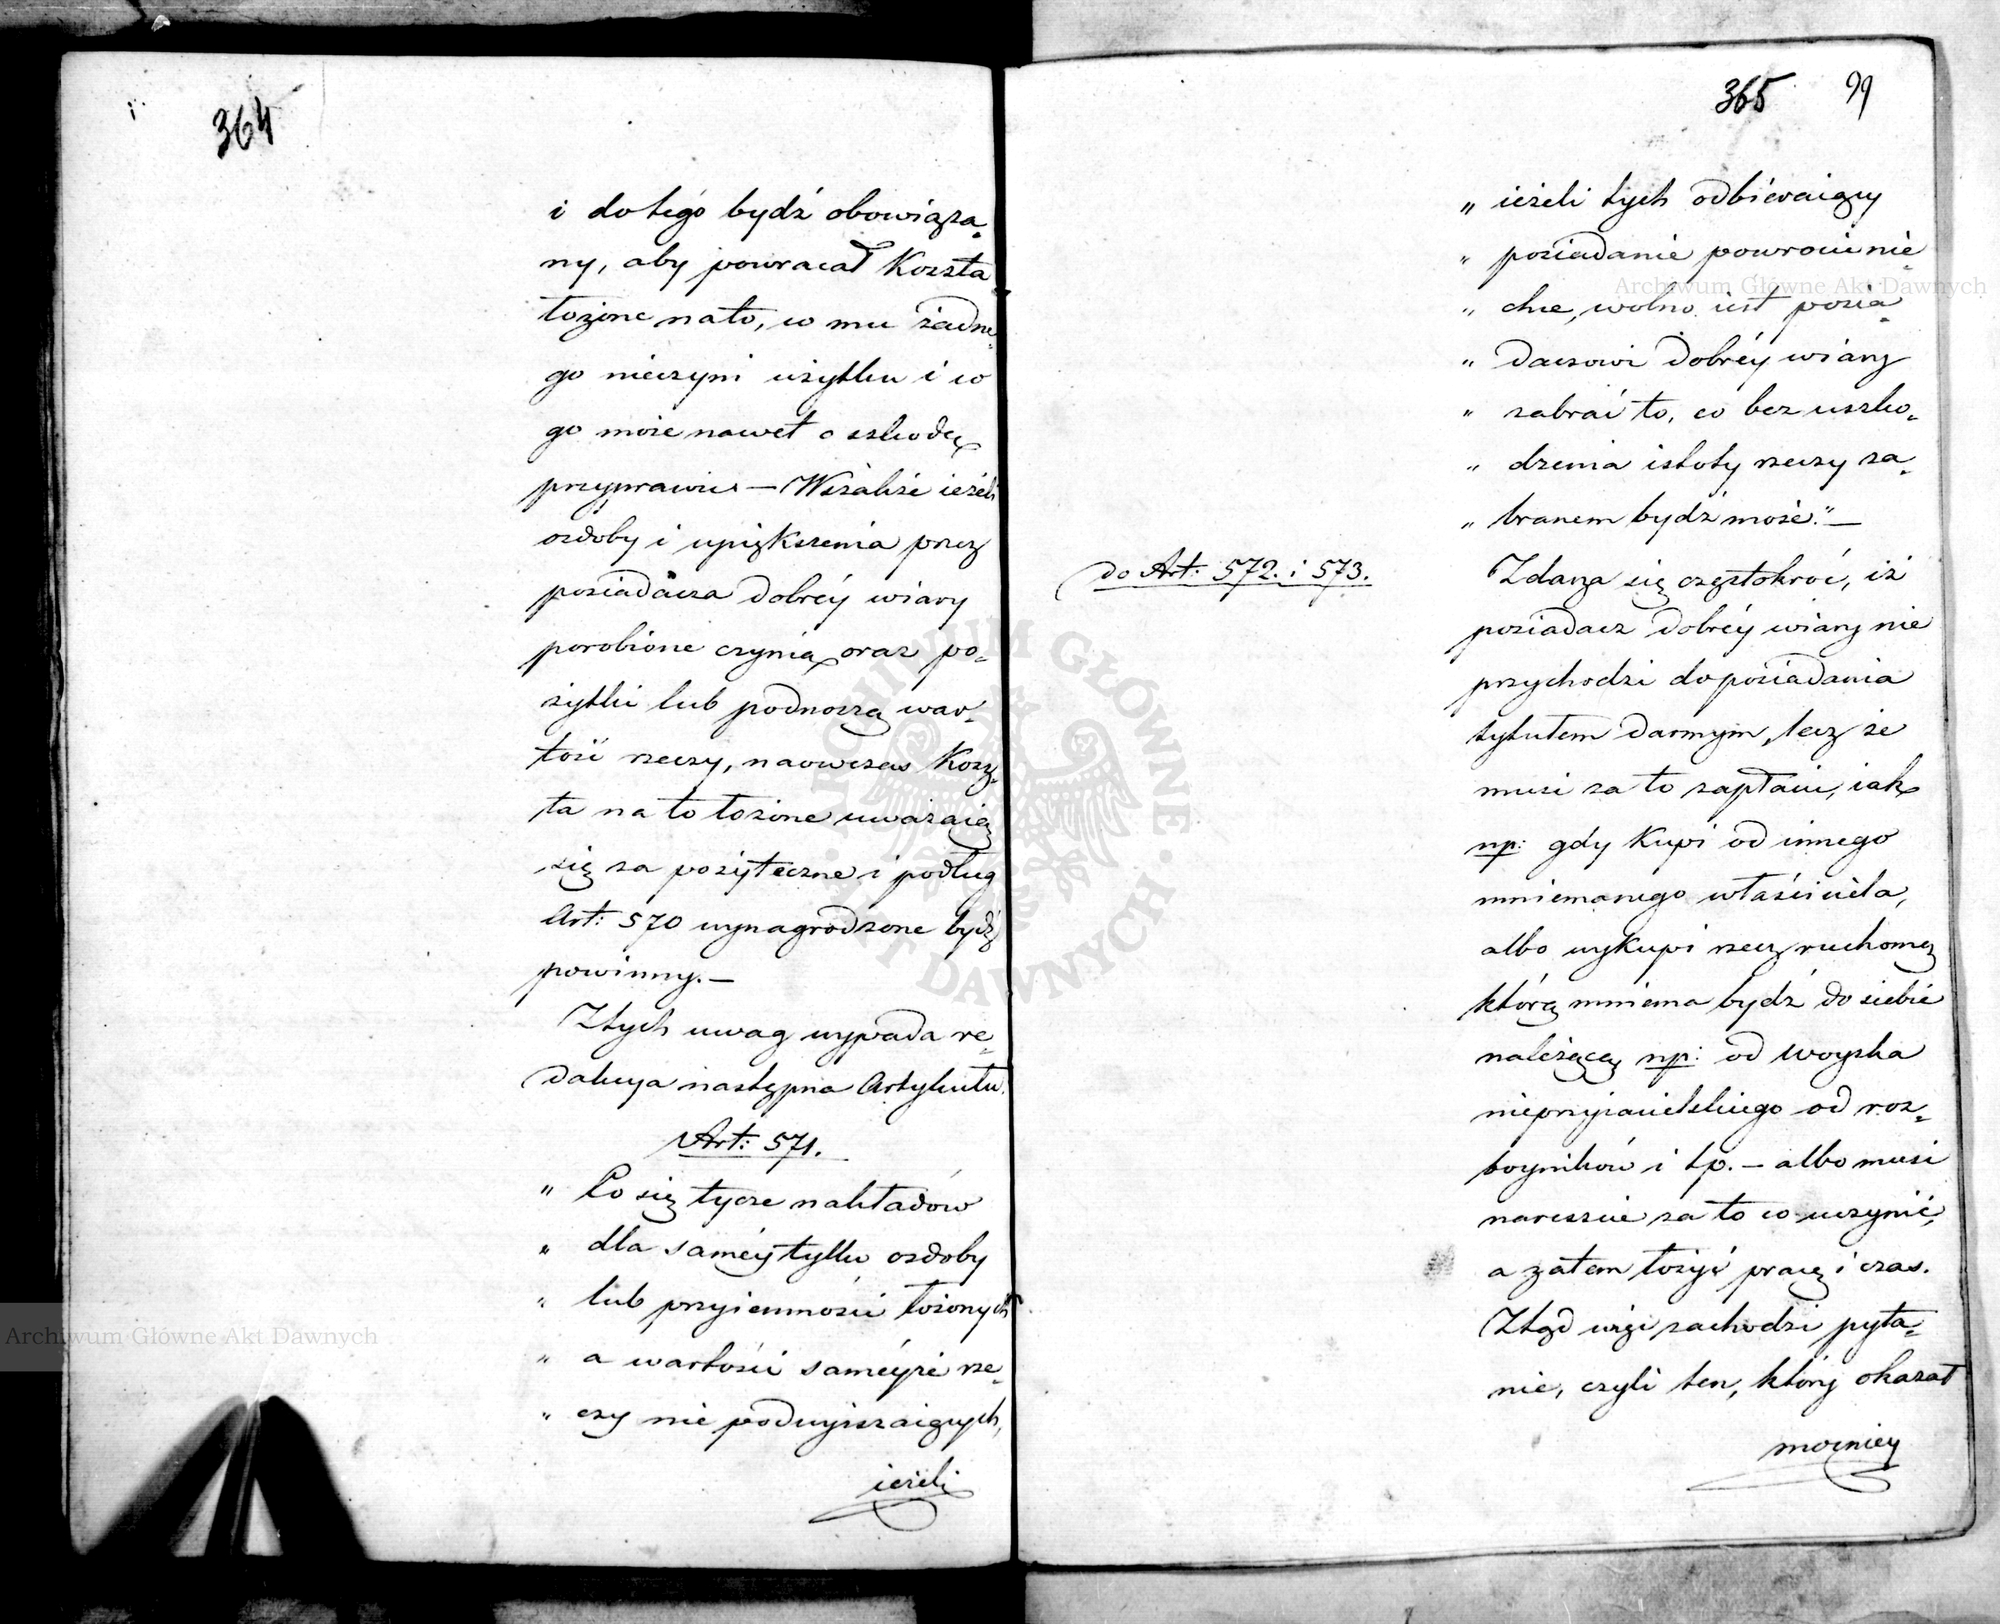 364
i do tego bydź obowiąza„
ny, aby powracał Koszta
łożone na to, co mu żadne„
go nieczyni użytku i co
go może nawet o szkodę
przyprawić — Wszakże ieżeli
ozdoby i upiększenia przez
posiadacza dobréy wiary
porobione czynią oraz po„
żytki lub podnoszą war„
tość rzeczy, naówczas Kosz„
ta na to łożone uważaią
się za pożyteczne i podług
Art: 570 wynagrodzone bydź
powinny. —
Z tych uwag wypada re„
dakcya następna Artykułu.
Art: 571.
„ Co się tycze nakładów
„ dla saméy tylko ozdoby
„ lub przyiemności łożonych
„ a wartości saméyże rze„
„ czy nie podwyiszaiących,
ieżeli
365 99
„ ieżeli tych odbieraiący
„ posiadanie powrócić nie„
„ chce, wolno iest posia„
„ daczowi dobréy wiary
„ zabrać to, co bez uszko„
„ dzenia istoty rzeczy za„
„ branem bydź może." —
do Art: 572. i 573.
Zdarza się częstokroć, iż
posiadacz dobréy wiary nie
przychodzi do posiadania
tytułem darmym, lecz że
musi za to zapłacić, iak
np: gdy Kupi od innego
mniemanego właściciela,
albo wykupi rzecz ruchomą
którą mniema bydź do siebie
należącą np: od woyska
nieprzyiacielskiego od roz„
boyników i tp. — albo musi
nareszcie za to co uczynić,
a zatem łożyć pracę i czas.
Ztąd więc zachodzi pyta„
nie, czyli ten, który okazał
mocniey
Archiwum Główne Akt Dawnych
Archiwum Główne Akt Dawnych
ARCHIWUM GŁÓWNE AKT DAWNYCH